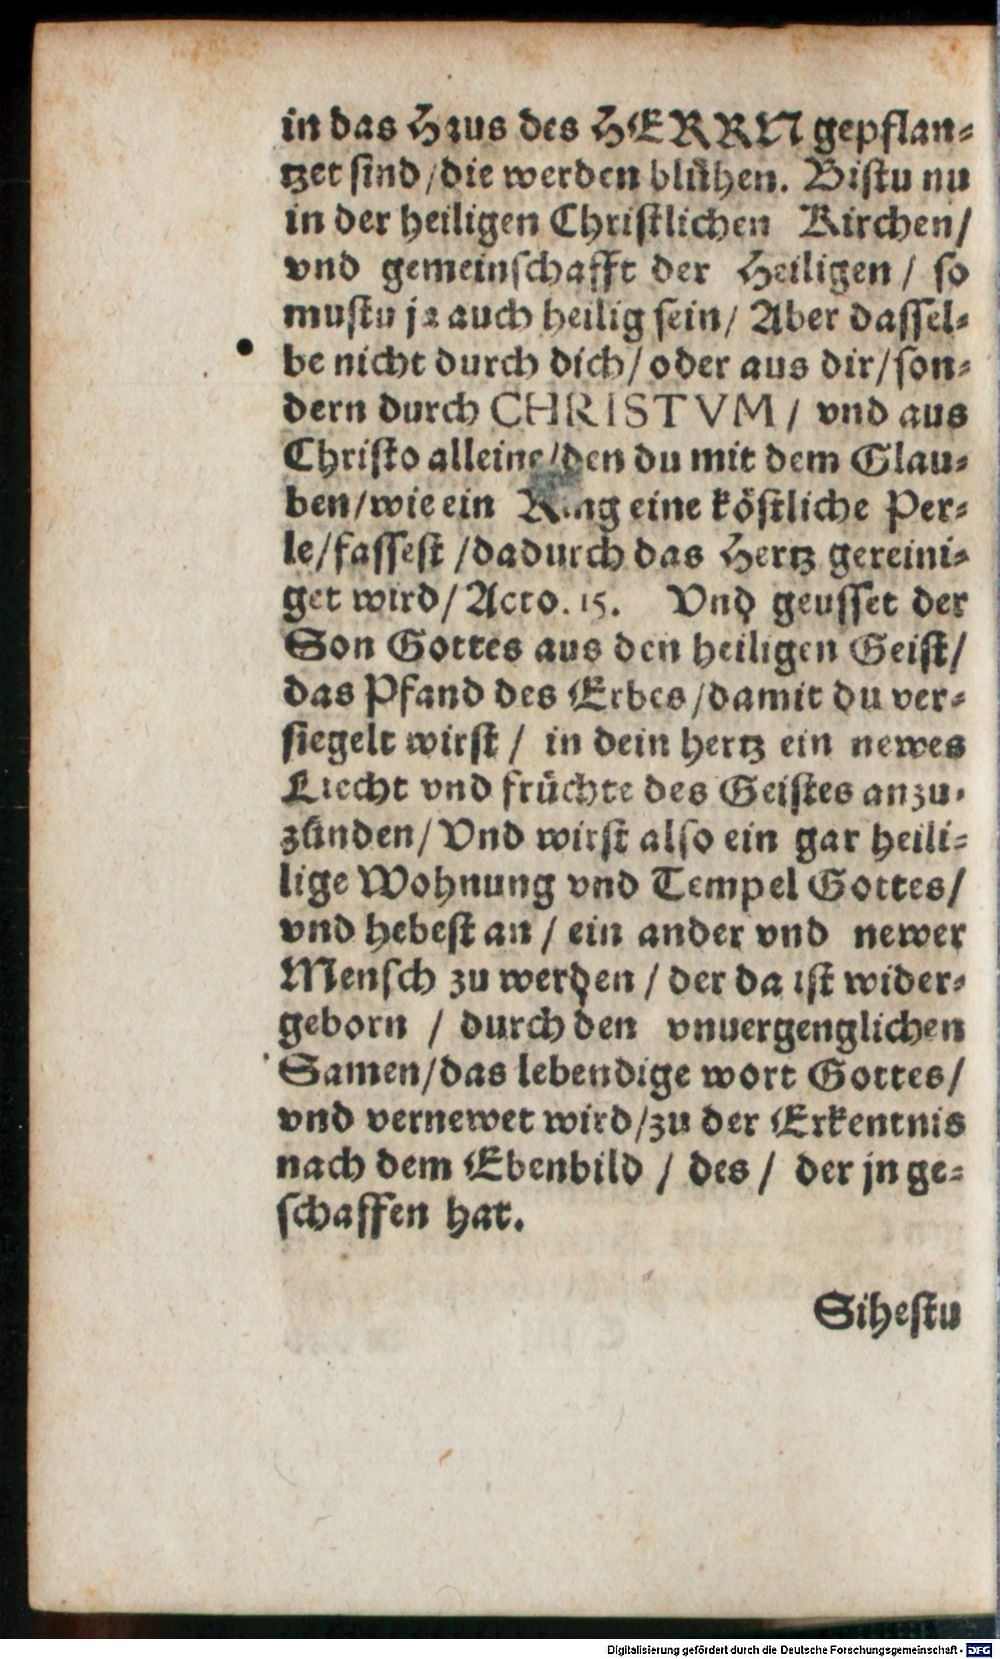 in das Haus des HERRN gepflan⸗
tzet sind/die werden blühen. Bistu nu
in der heiligen Christlichen Kirchen/
vnd gemeinschafft der Heiligen/ so
mustu ja auch heilig sein/ Aber dassel⸗
be nicht durch dich/oder aus dir/son⸗
dern durch CHRISTVM/ vnd aus
Christo alleine/den du mit dem Glau⸗
ben/wie ein Ring eine köstliche Per⸗
le/fassest/dadurch das Hertz gereini⸗
get wird/Acto. 15. Vnd geusset der
Son Gottes aus den heiligen Geist/
das Pfand des Erbes/damit du ver⸗
siegelt wirst/ in dein hertz ein newes
Liecht vnd früchte des Geistes anzu⸗
zünden/Vnd wirst also ein gar heili⸗
lige Wohnung vnd Tempel Gottes/
vnd hebest an/ ein ander vnd newer
Mensch zu werden/ der da ist wider⸗
geborn / durch den vnuergenglichen
Samen/das lebendige wort Gottes/
vnd vernewet wird/zu der Erkentnis
nach dem Ebenbild / des/ der jn ge⸗
schaffen hat.
Sihestu
Digitalisierung gefördert durch die Deutsche Forschungsgemeinschaft - DFG